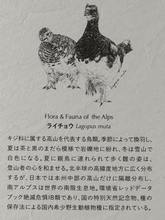 Flora & Fauna of the Alps
ライチョウ Lagopus muta
キジ科に属する高山を代表する鳥類。季節によって換羽し、
夏は茶と黒のまだら模様で岩礫地に紛れ、冬は雪山で
白色になる。夏に親鳥に連れられて歩く雛の姿は、
登山者の心を和ませる。北半球の高緯度地方に広く分布
するが、日本では本州中部の高山だけに隔離分布し、
南アルプスは世界の南限生息地。環境省レッドデータ
ブック絶滅危惧IB類であり、国の特別天然記念物、種
の保存法による国内希少野生動物種に指定されている。